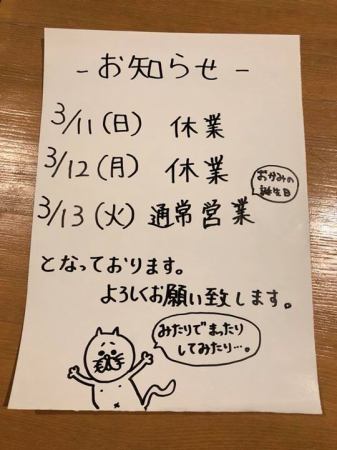 - お知らせ -
3/11(日) 休業
3/12(月) 休業
おかみの
誕生日
3/13(火) 通常営業
となっております。
よろしくお願い致します。
みたりでまったり
してみたり…。